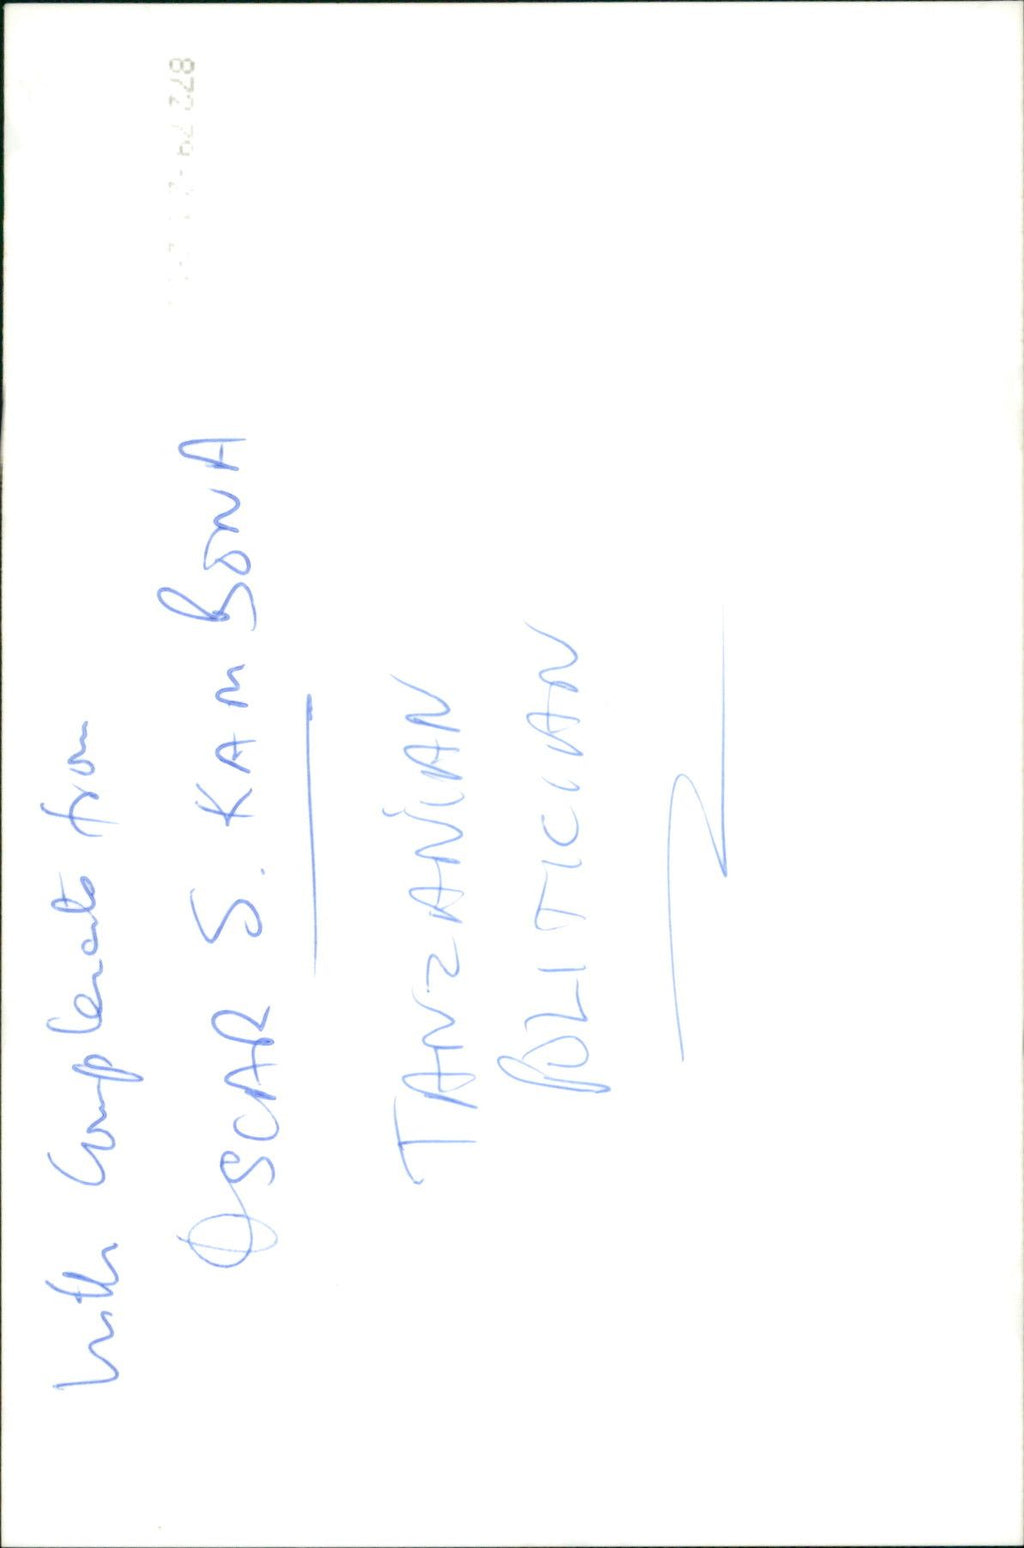 With Complements from
OSCAR S. KAMBONA
TANZANIAN
POLITICIAN